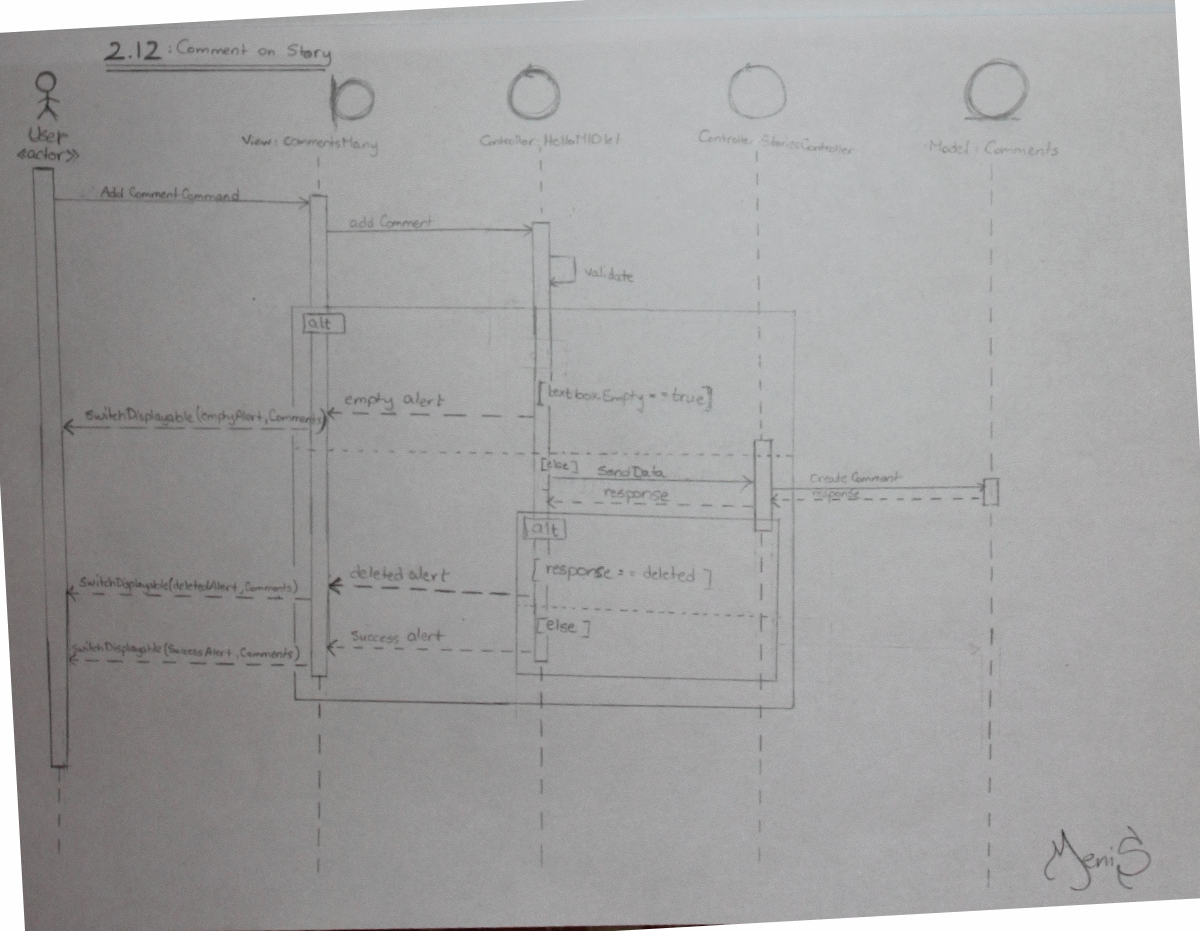 2.12 : Comment on Story
User
«actor»
View : CommentsMany
Controller : HelloMIDlet
Controlle: StoriesController
Model : Comments
Add Comment Command
add Comment
validate
alt
[textbox.Empty == true]
empty alert
switchDisplayable (emptyAlert, Comments)
[else]
sendData
create Comment
response
response
alt
[response == deleted]
deleted alert
switchDisplayable (deletedAlert, Comments)
[else]
success alert
switchDisplayable (SuccessAlert, Comments)
MeniS